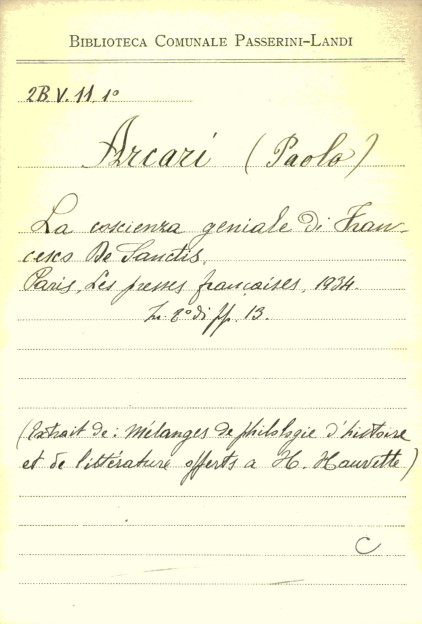 BIBLIOTECA COMUNALE PASSERINI-LANDI
2B.V.11.1º
Arcari (Paolo)
La coscienza geniale di Fran-
cesco De Sanctis.
Paris, Les presses françaises, 1934.
In 8º di pp. 13.
(Extrait de: Mélanges de philologie d'histoire
et de littérature offerts a H. Hauvette)
C